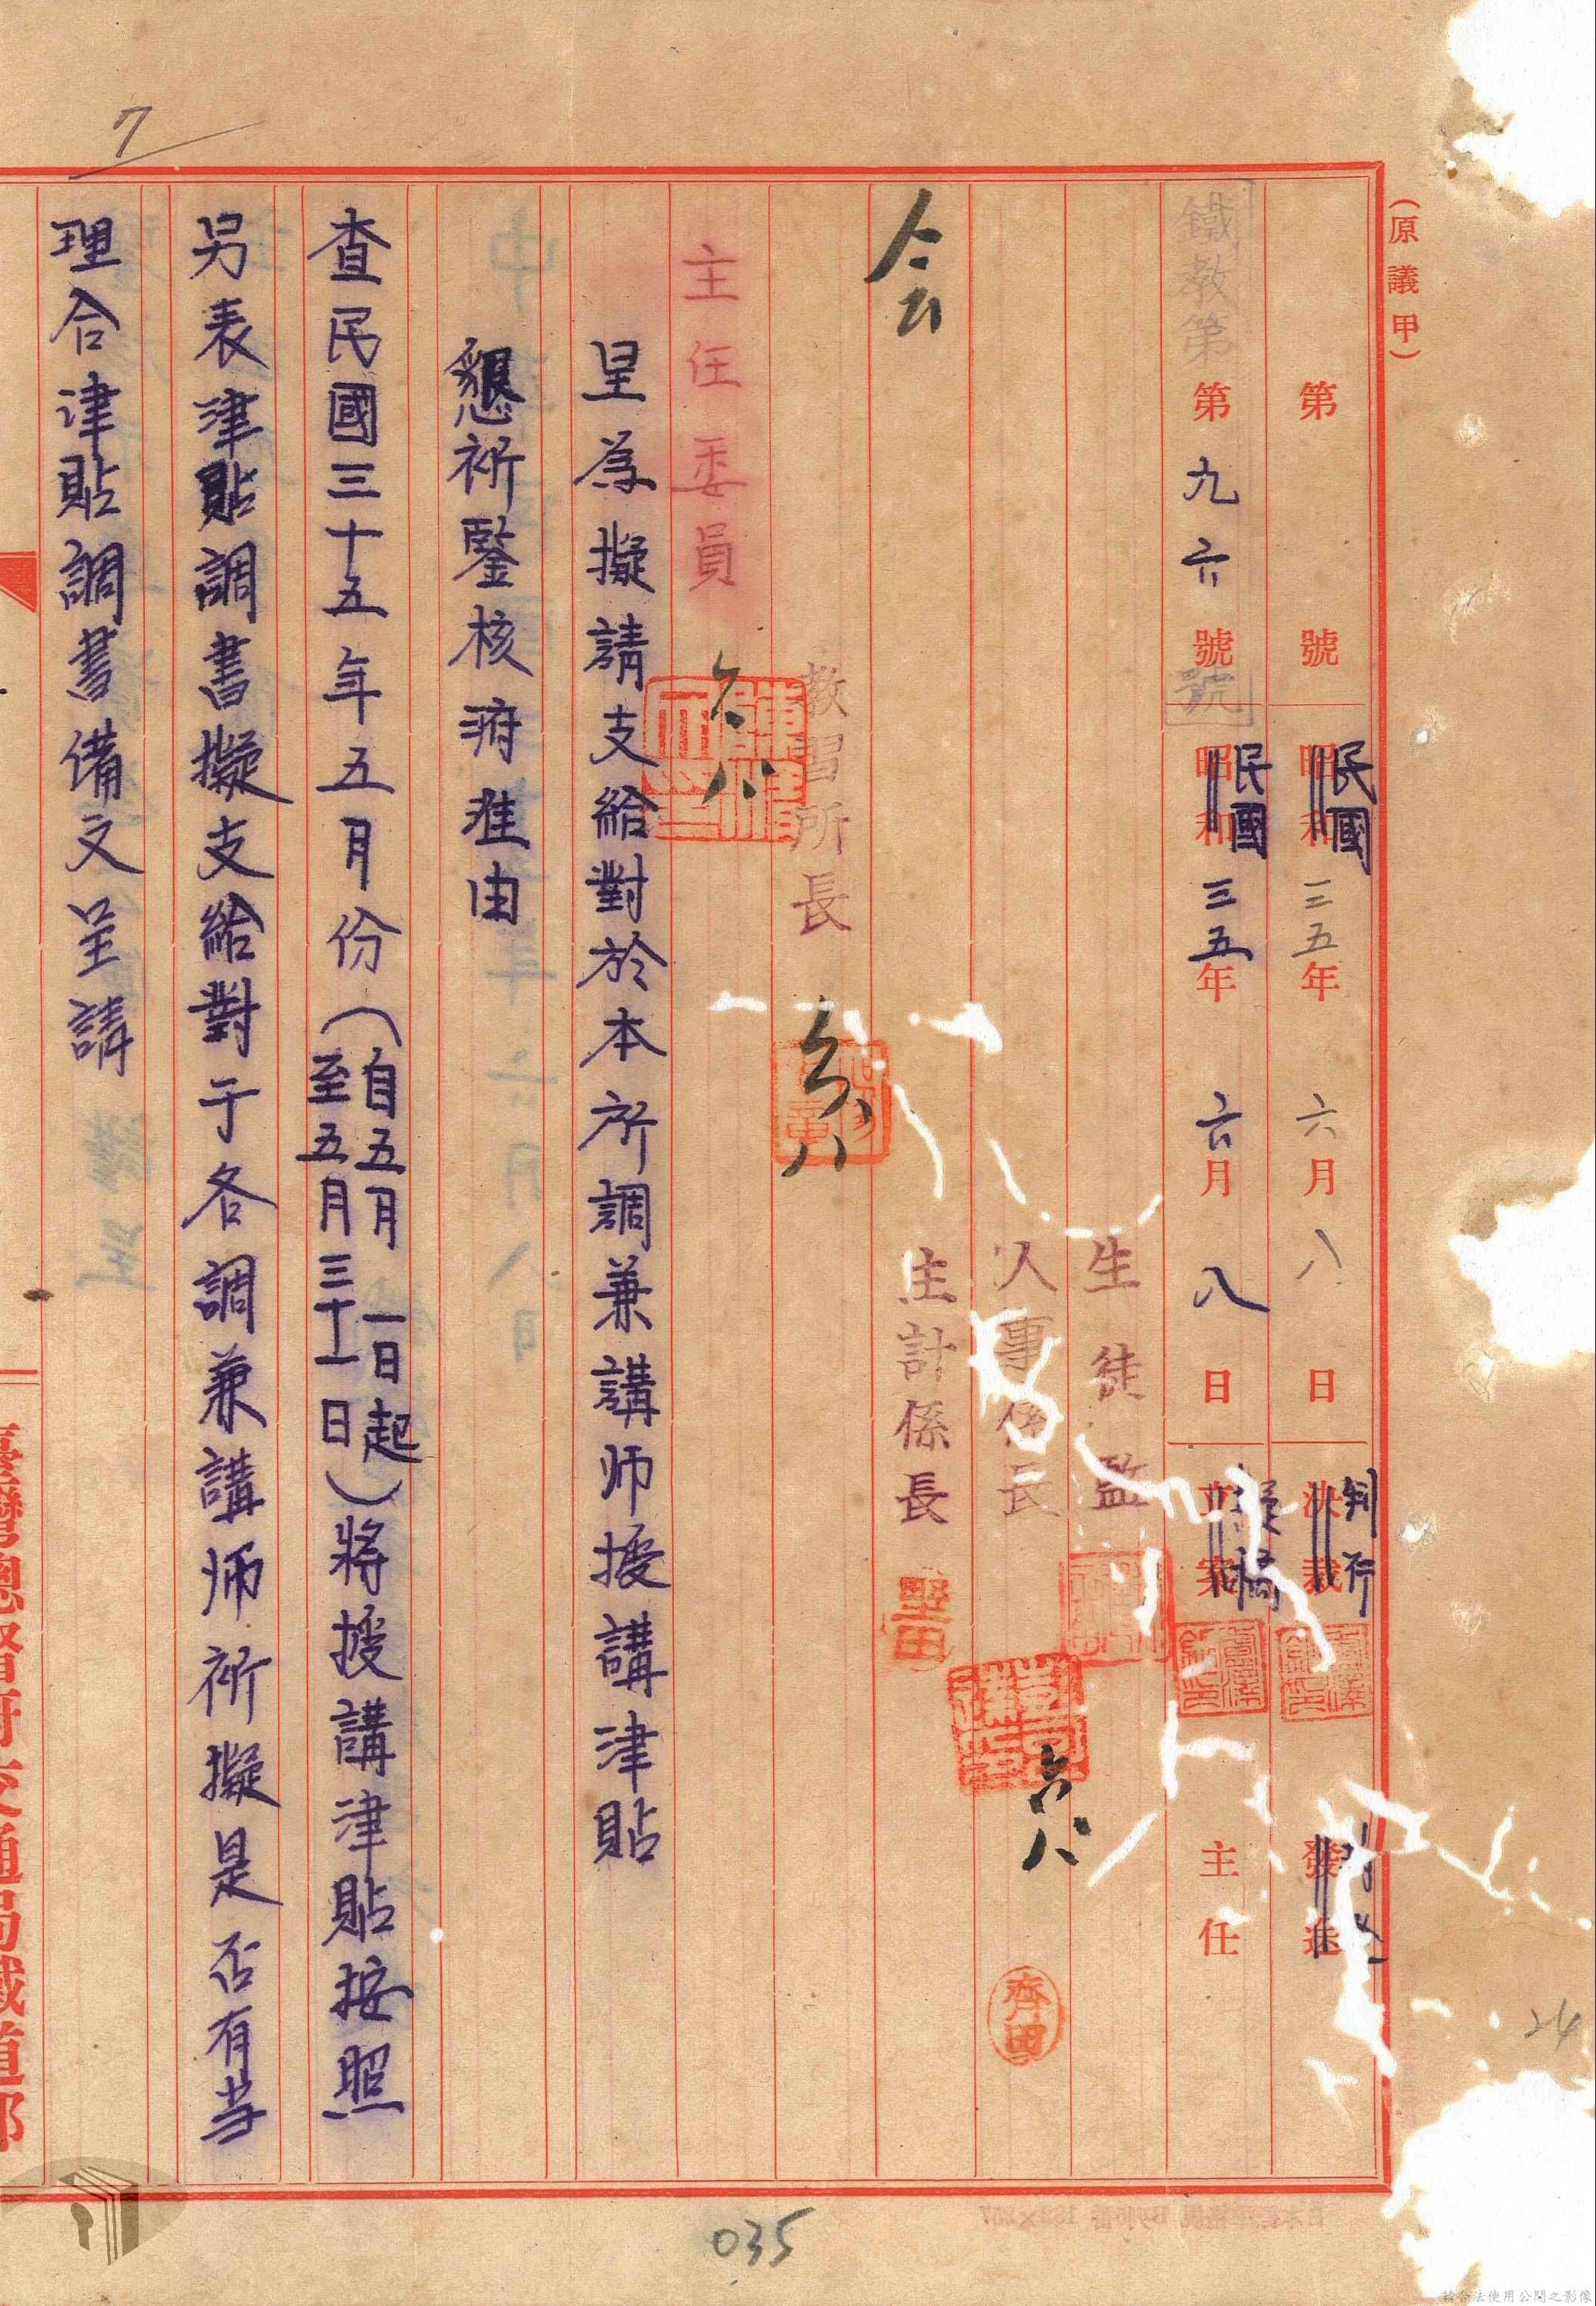 (原議甲)
第 號 昭和 民國 三五年 六月 八日 決裁 判行 發送
鐵教第 第九六號 號 昭和 民國 三五年 六月 八日 立案 擬稿 主任
生徒監
人事係長 六八 齊田
主計係長 堅田
会
教習所長 六八
主任委員 六八
呈為擬請支給對於本所調兼講师援講津貼
懇祈鑒核府准由
查民國三十五年五月份(自五月一日起至五月三十一日)將援講津貼按照
另表津貼調書擬支給對于各調兼講师祈擬是否有当
理合津貼調書備文呈請
臺灣總督府交通局鐵道部
7
24
035
請合法使用公開之影像